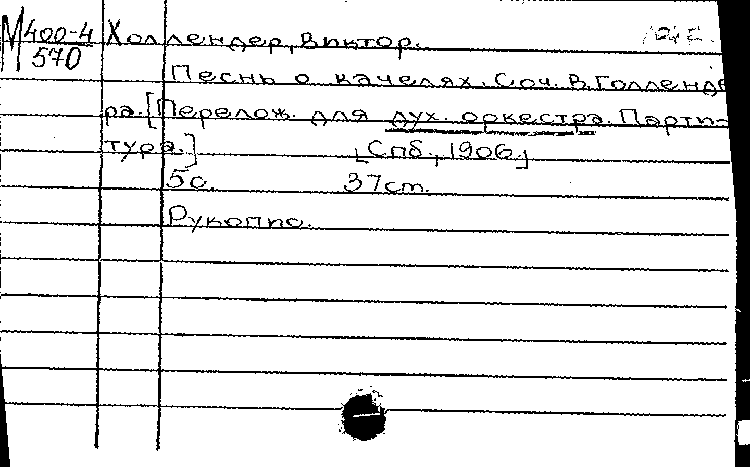 М 400-4 Холлендер, Виктор.
570
Песнь о качелях. Соч. В. Голленде
ра. [Перелож. для дух. оркестра. Парти-
тура.] [Спб., 1906.]
5с. 37 ст.
Рукопис.